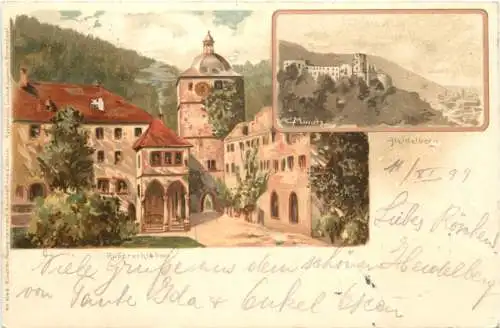 C Münch
Heidelberg
11/XI 99
Liebes Röschen!
Ruprechtsbau
Viele Grüsse aus dem schönen Heidelberg
von Tante Ida & Onkel